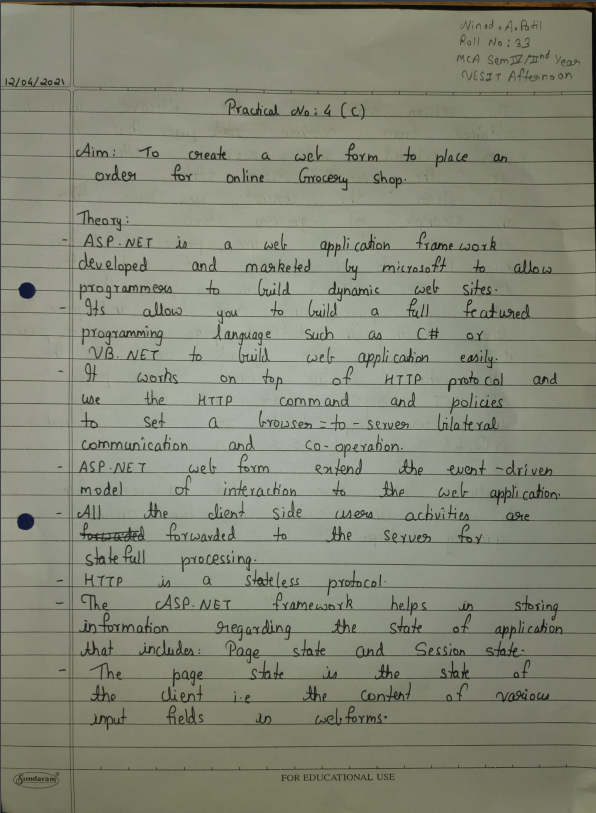 Ninad. A. Patil
Roll No: 33
MCA Sem IV/IInd Year
VESIT Afternoon
12/04/2021
Practical No: 4 (C)
Aim: To create a web form to place an
order for online Grocery shop.
Theory:
- ASP.NET is a web application framework
developed and marketed by microsoft to allow
programmers to build dynamic web sites.
- Its allow you to build a full featured
programming language such as C# or
VB.NET to build web application easily.
- It works on top of HTTP protocol and
use the HTTP command and policies
to set a browser-to-server bilateral
communication and co-operation.
- ASP.NET web form extend the event-driven
model of interaction to the web application.
- All the client side users activities are
forwaded forwarded to the server for
statefull processing.
- HTTP is a stateless protocol.
- The ASP.NET framework helps in storing
information regarding the state of application
that includes: Page state and Session state.
- The page state is the state of
the client i.e the content of various
input fields in webforms.
Sundaram
FOR EDUCATIONAL USE